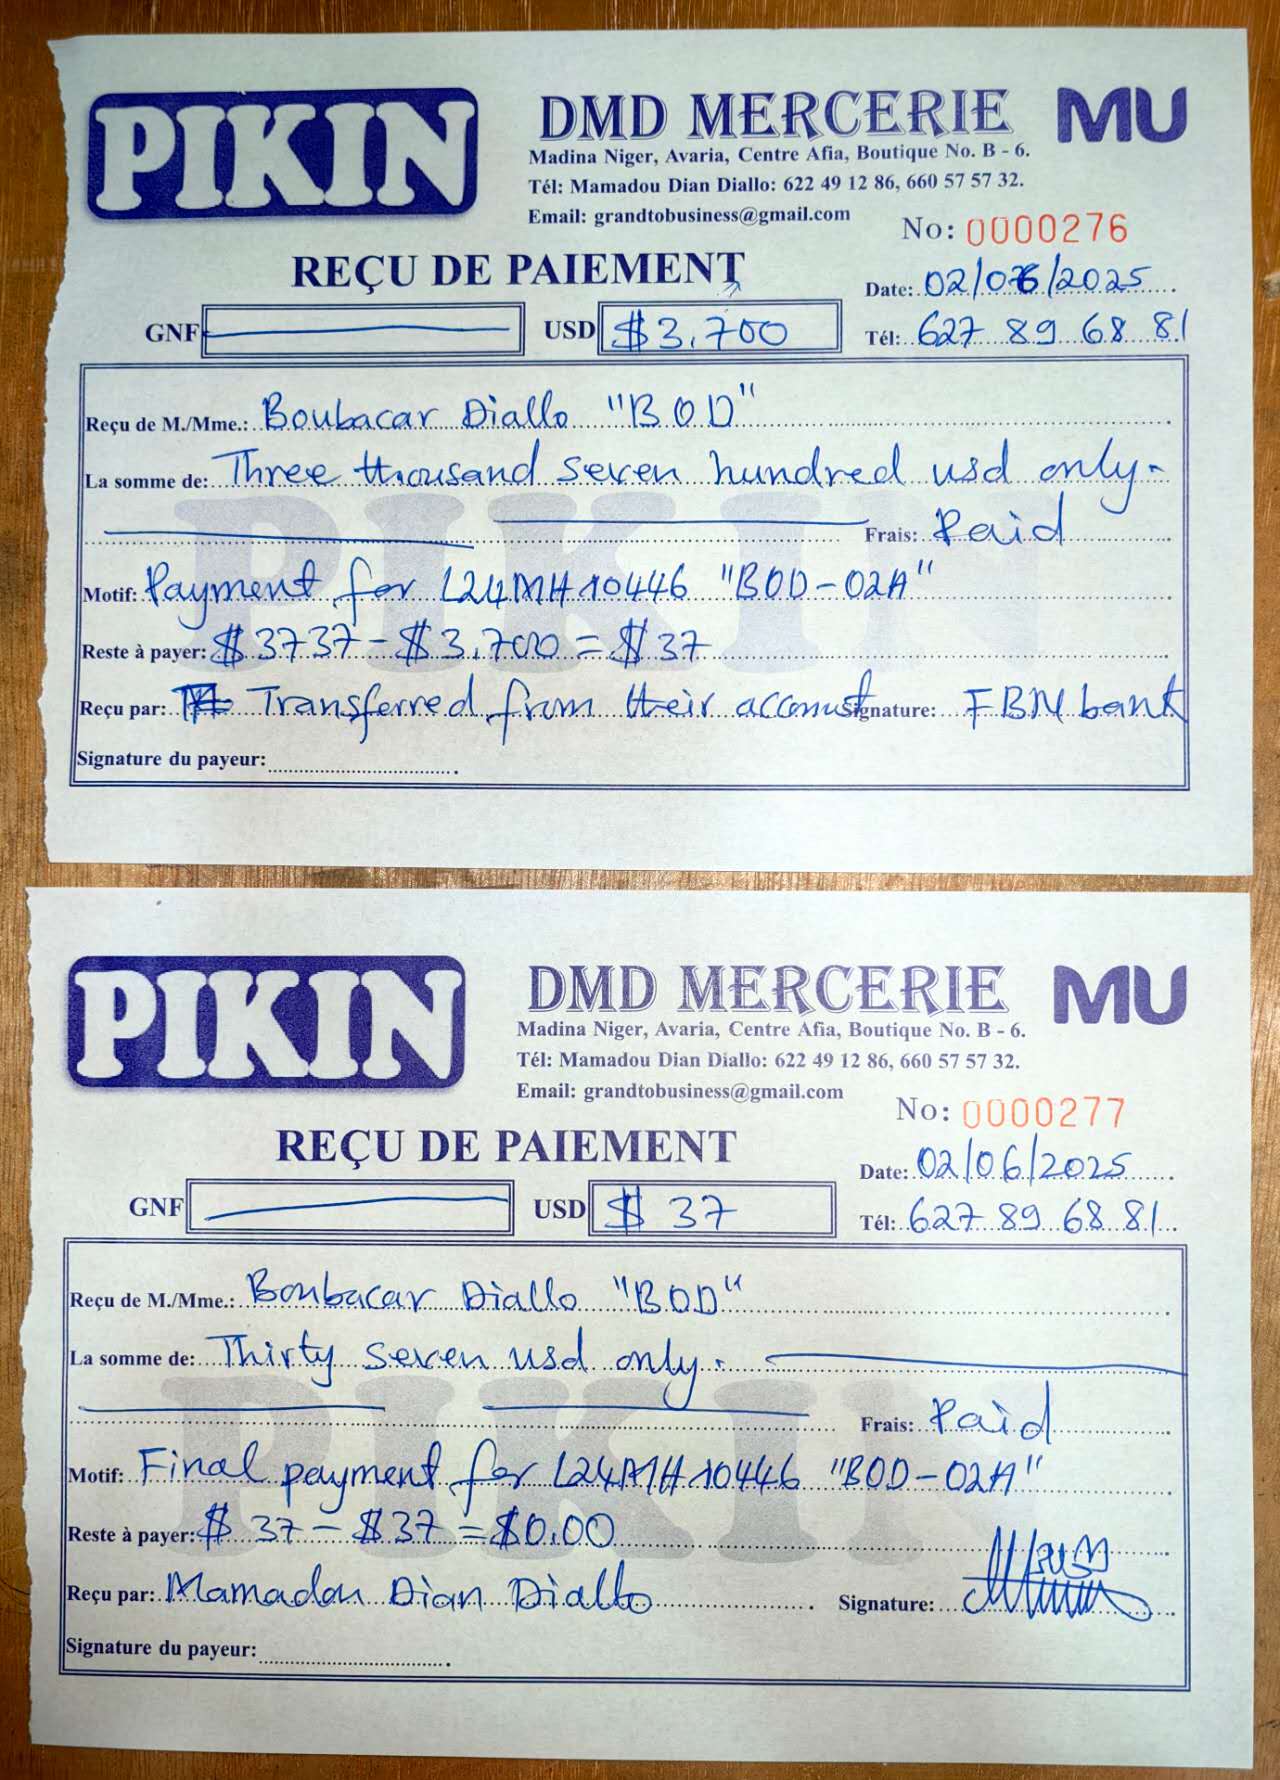 PIKIN
DMD MERCERIE MU
Madina Niger, Avaria, Centre Afia, Boutique No. B - 6.
Tél: Mamadou Dian Diallo: 622 49 12 86, 660 57 57 32.
Email: grandtobusiness@gmail.com
No: 0000276
REÇU DE PAIEMENT
Date: 02/06/2025
GNF USD $3,700 Tél: 627 89 68 81
Reçu de M./Mme.: Boubacar Diallo "BOD"
La somme de: Three thousand seven hundred usd only.
Frais: Paid
Motif: Payment for L24MH10446 "BOD-02A"
Reste à payer: $3737 - $3,700 = $37
Reçu par: Transferred from their account Signature: FBN bank
Signature du payeur:
PIKIN
PIKIN
DMD MERCERIE MU
Madina Niger, Avaria, Centre Afia, Boutique No. B - 6.
Tél: Mamadou Dian Diallo: 622 49 12 86, 660 57 57 32.
Email: grandtobusiness@gmail.com
No: 0000277
REÇU DE PAIEMENT
Date: 02/06/2025
GNF USD $37 Tél: 627 89 68 81
Reçu de M./Mme.: Boubacar Diallo "BOD"
La somme de: Thirty seven usd only.
Frais: Paid
Motif: Final payment for L24MH10446 "BOD-02A"
Reste à payer: $37 - $37 = $0.00
Reçu par: Mamadou Dian Diallo Signature:
Signature du payeur:
PIKIN